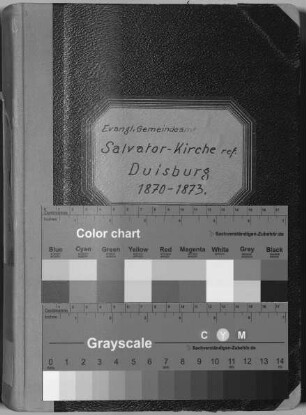 Evangl. Gemeindeamt
Salvator-Kirche ref.
Duisburg
1870-1873.
Color chart
Sachverständigen-Zubehör.de
Blue Cyan Green Yellow Red Magenta White Grey Black
Grayscale
C Y M
Sachverständigen-Zubehör.de
0 1 2 3 4 5 6 7 8 9 10 11 12 13 14